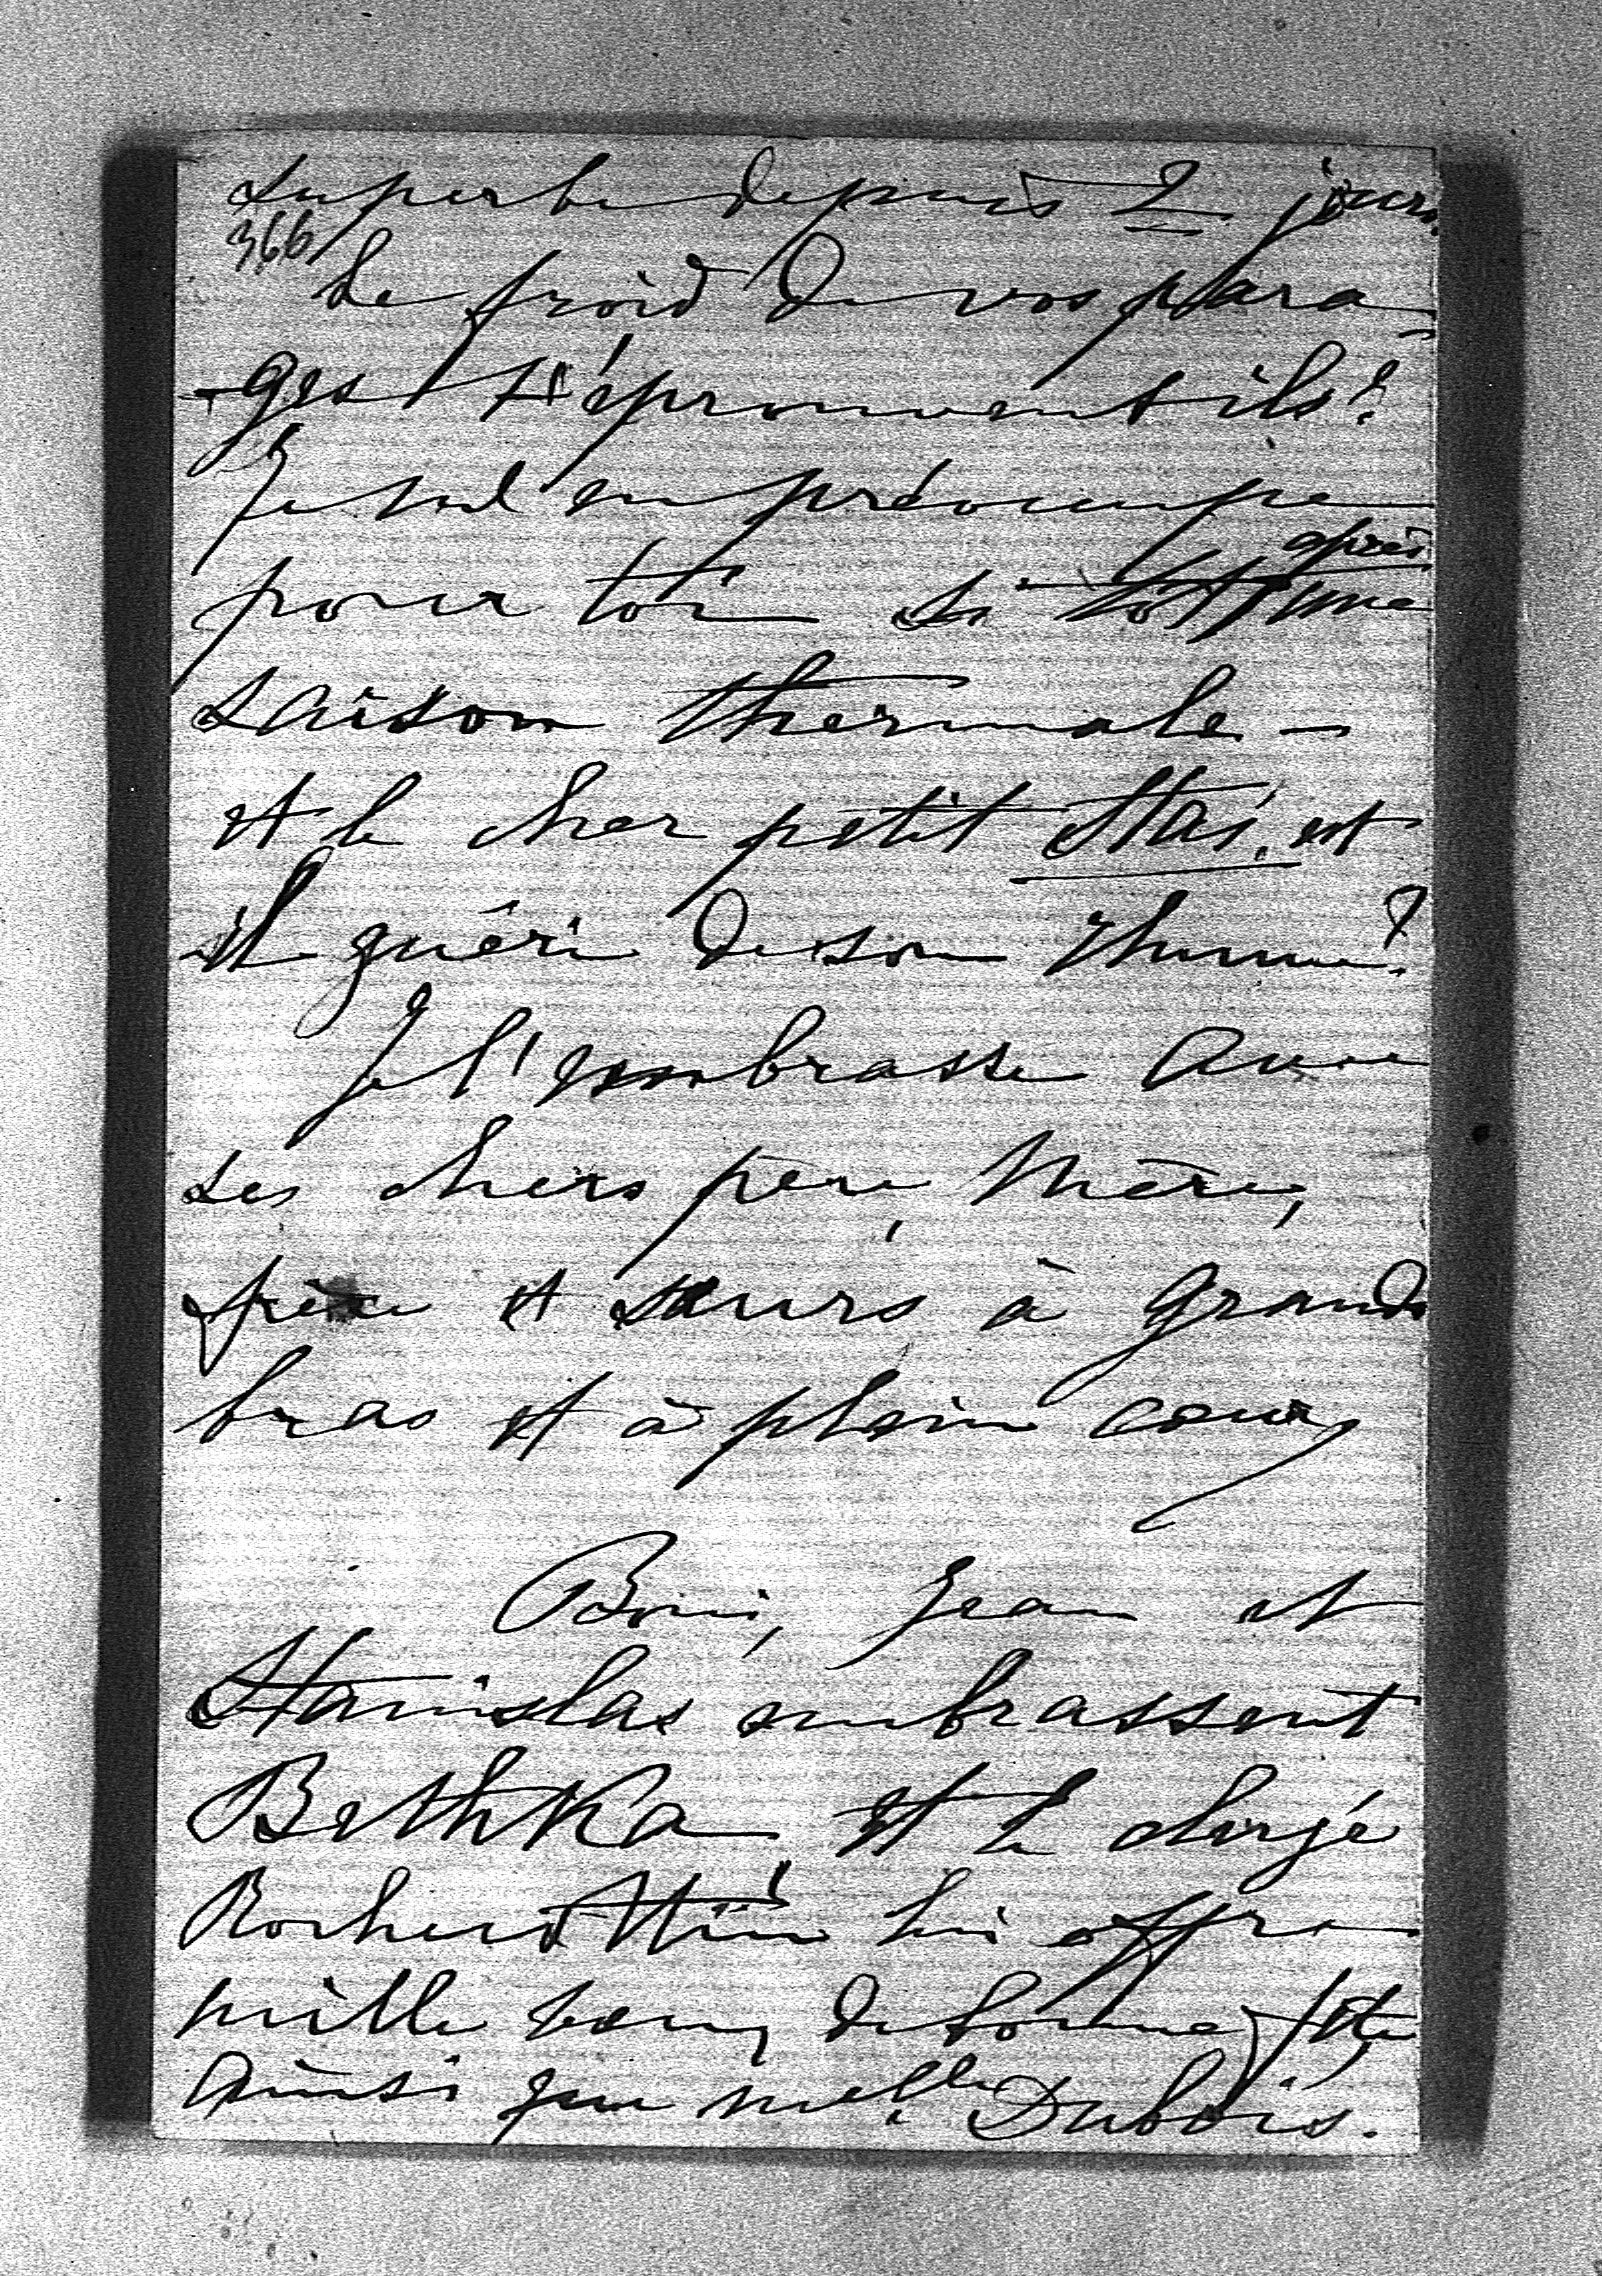 superbe depuis 2 jours.
366
Le froid de vos para
-ges l'éprouvent ils?
Je m'en préoccupe
pour toi si tôt après une
saison thermale –
et le cher petit Stas, est
il guéri de son rhume?
Je l'embrasse avec
ses chers père, mère,
frère et sœurs à grands
bras et à plein cœur,
Boni, Jean et
Stanislas embrassent
Bethka et le
lui offre
mille vœux de bonne fête
ainsi que melle Dubois.